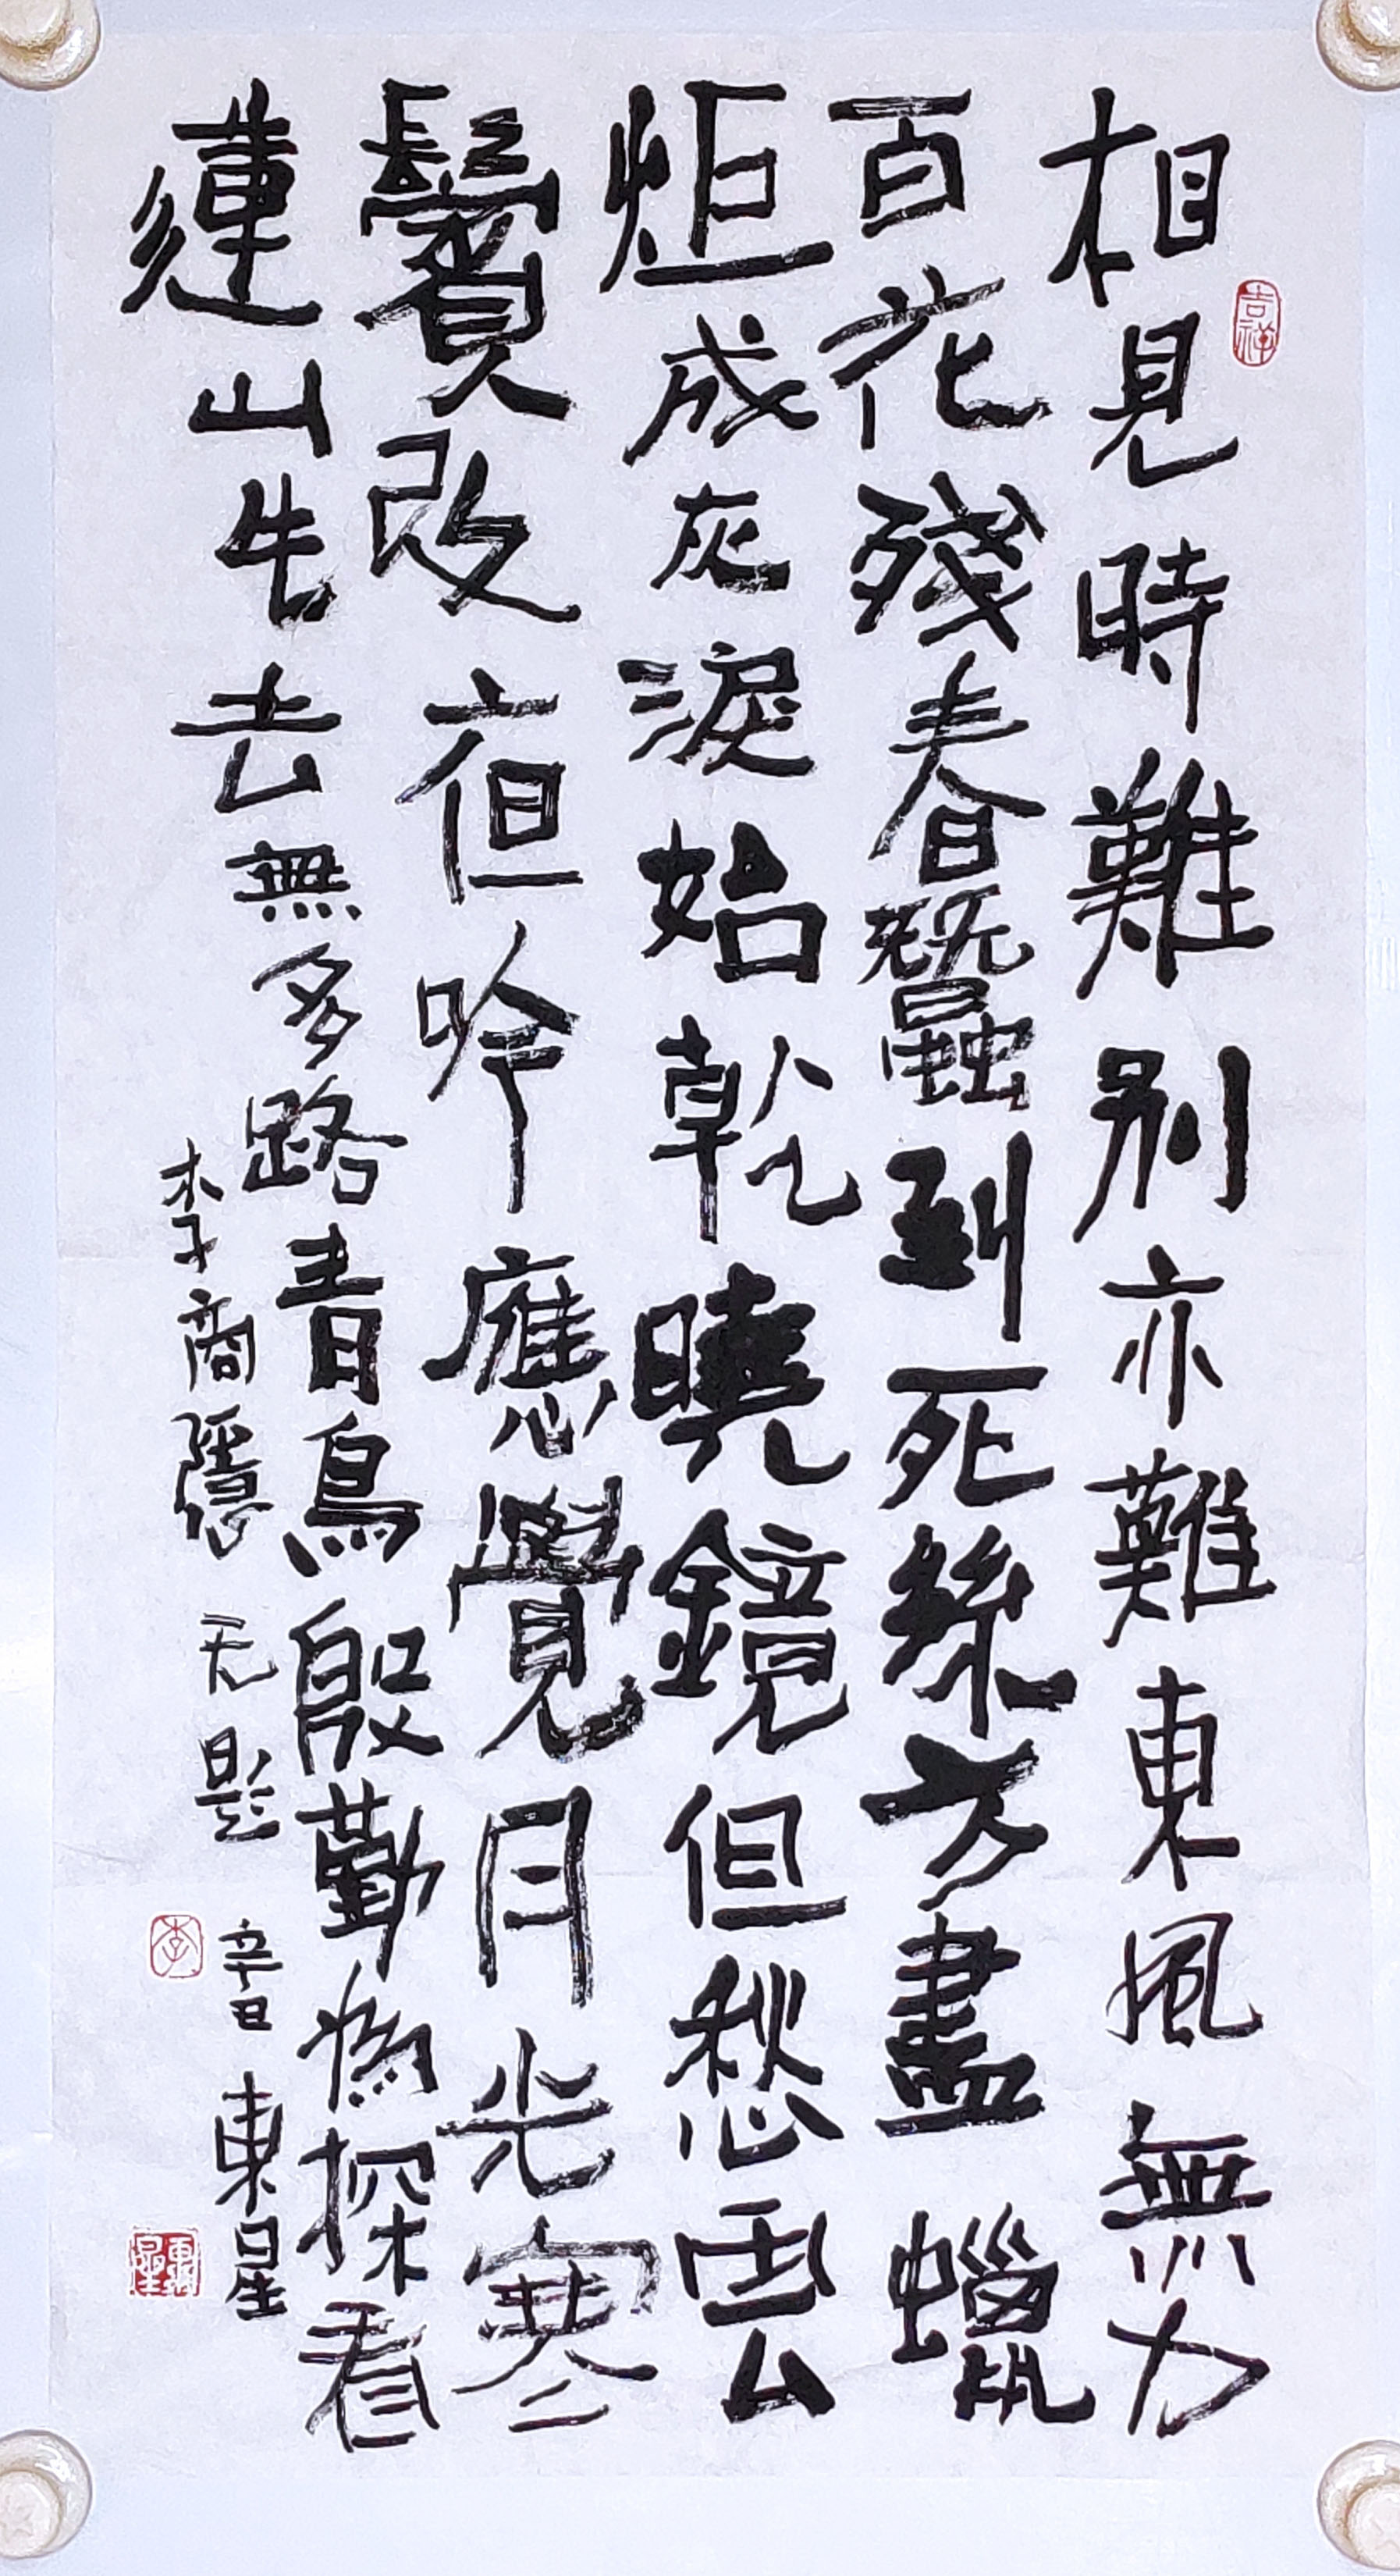 吉祥
相見時難別亦難東風無力
百花殘春蠶到死絲方盡蠟
炬成灰淚始乾曉鏡但愁雲
鬢改亱吟應覺月光寒
蓬山此去無多路青鳥殷勤為探看
李商隱 无题 東星
李
東星